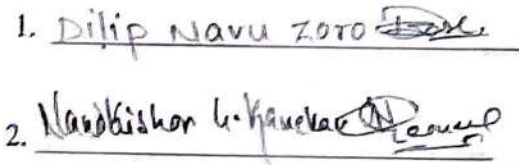 1. Dilip Navu Zoro
2. Nandkishor G. Kanekar